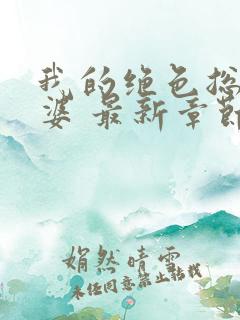 我的绝色总
婆 最新章节
娟然晴雪
未经同意禁止转载